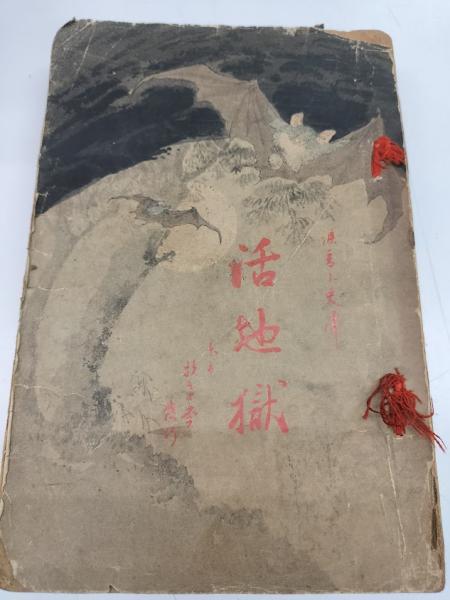 涙香小史譯
活地獄
東京
扶桑堂
發行